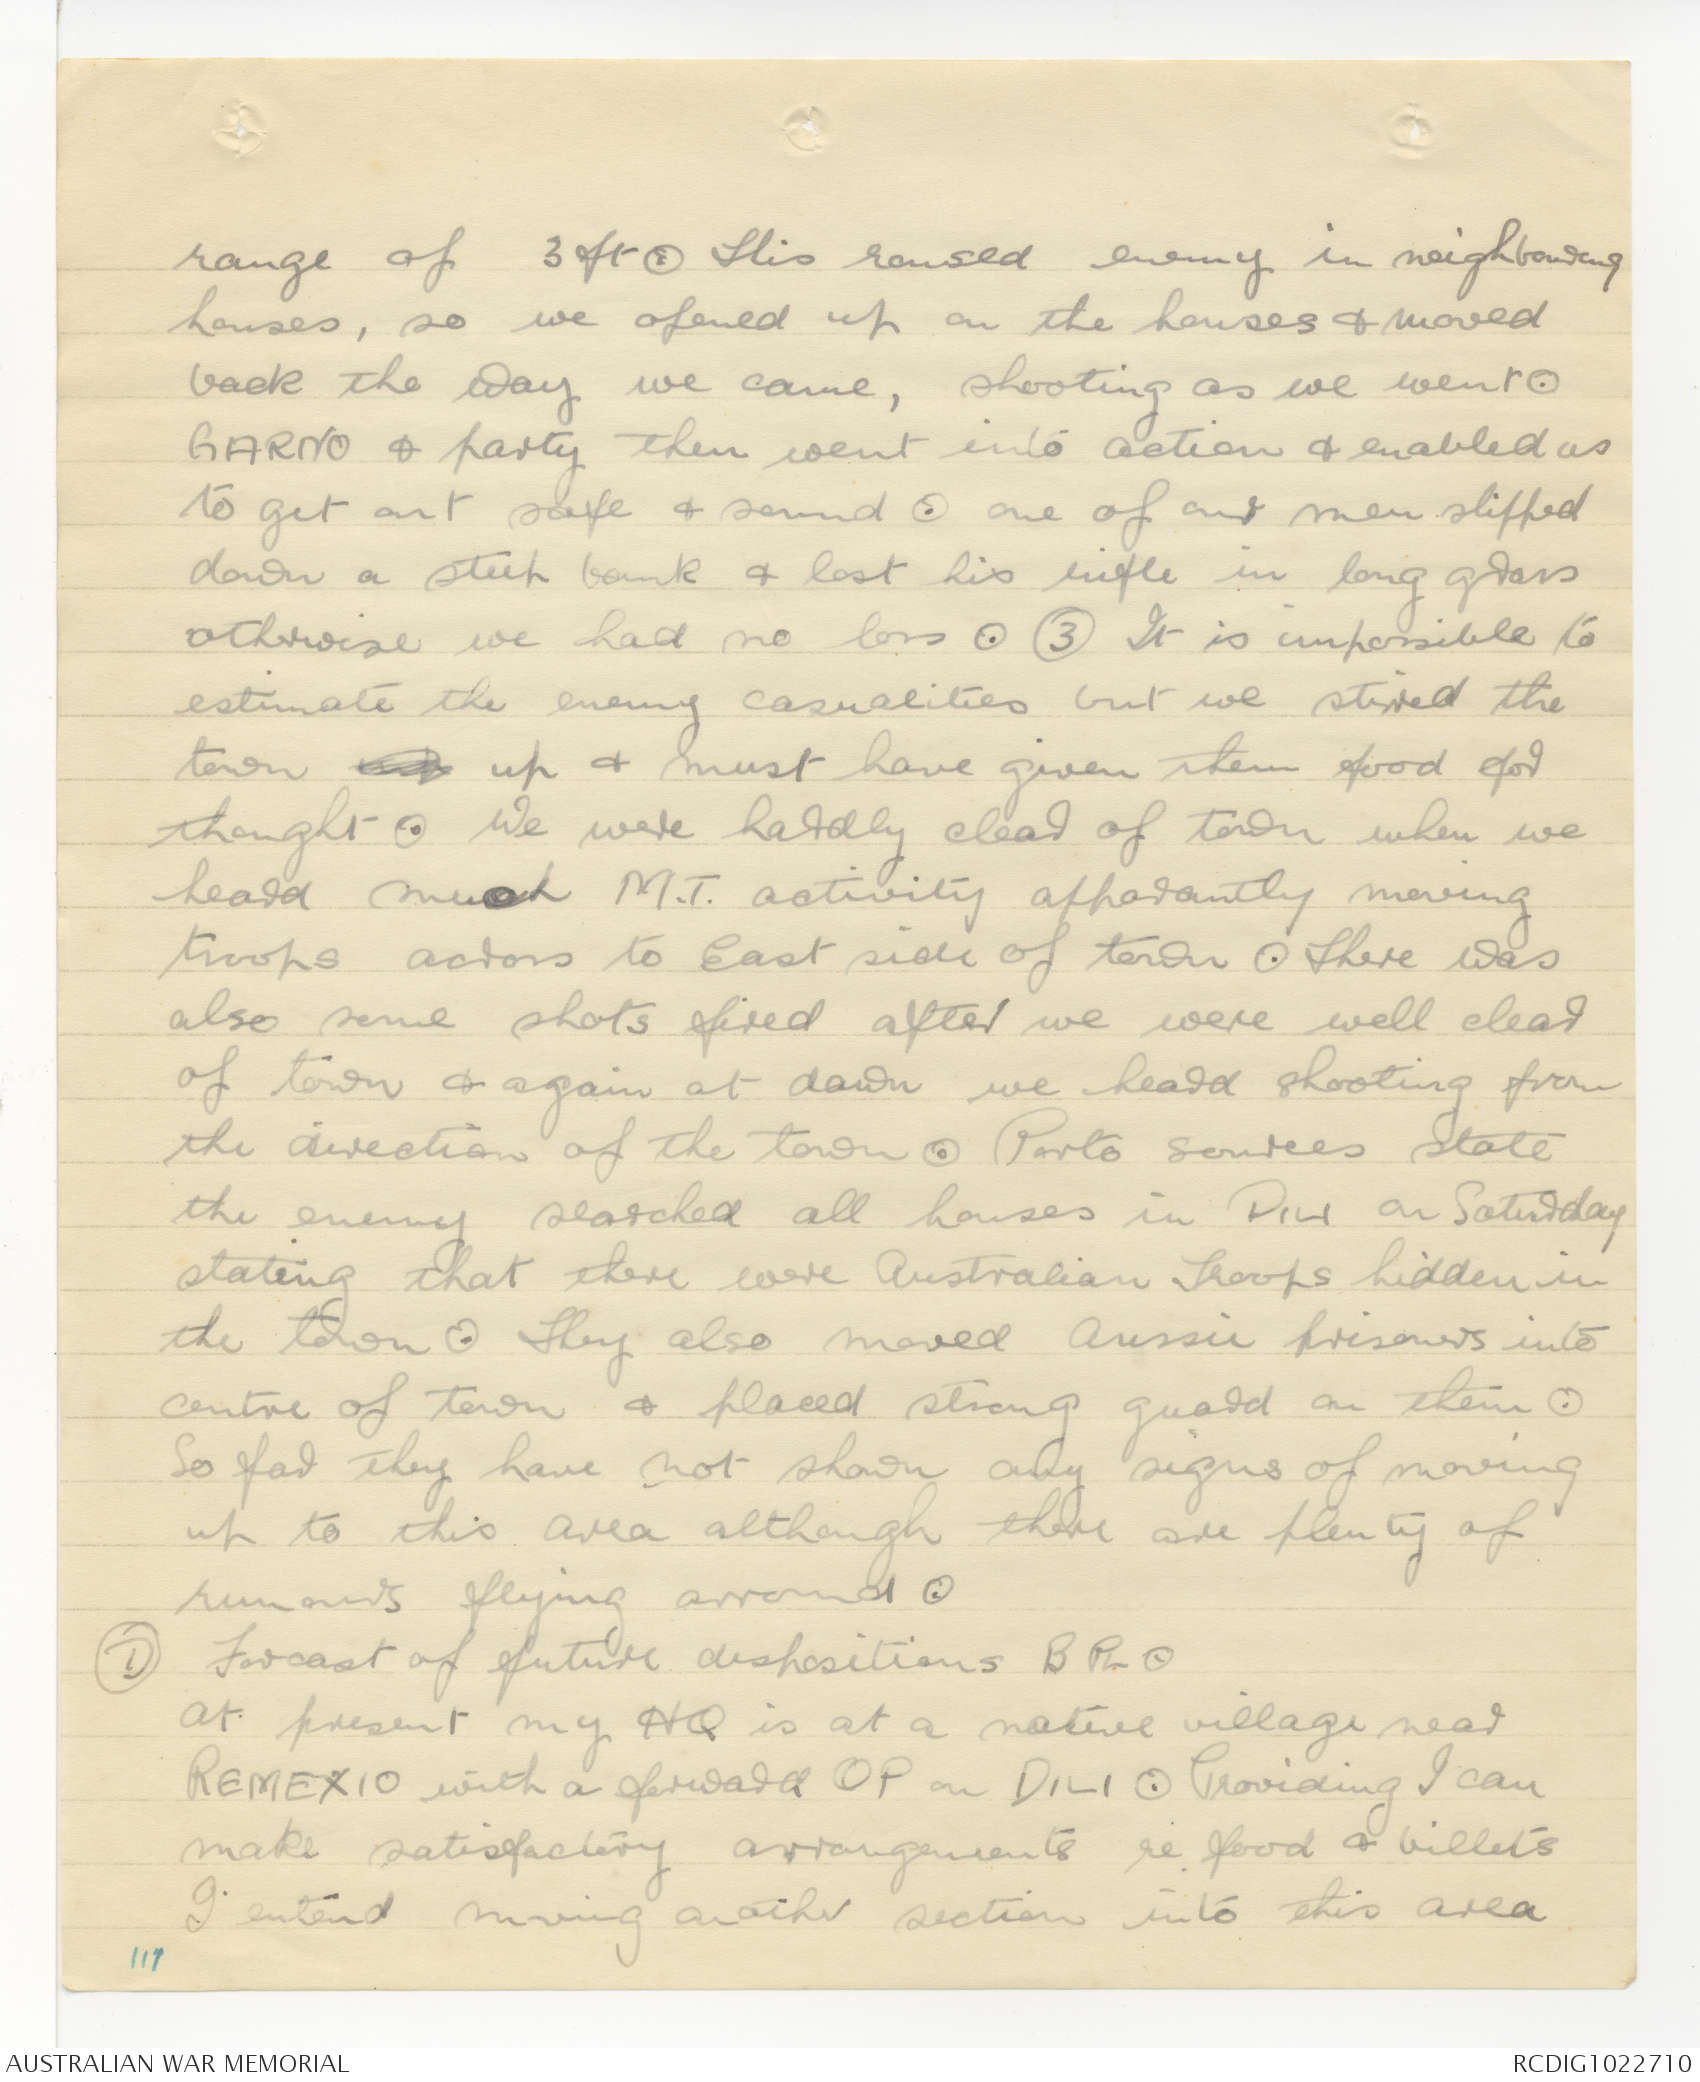 range of 3 ft ⊙ This roused enemy in neighbouring
houses, so we opened up on the houses & moved
back the way we came, shooting as we went ⊙
GARNO & party then went into action & enabled us
to get out safe & sound ⊙ one of our men slipped
down a steep bank & lost his rifle in long grass
otherwise we had no loss ⊙ ③ It is impossible to
estimate the enemy casualities but we stirred the
town up & must have given them food for
thought ⊙ We were hardly clear of town when we
heard much M.T. activity apparantly moving
troops across to East side of town ⊙ There was
also some shots fired after we were well clear
of town & again at dawn we heard shooting from
the direction of the town ⊙ Porto sources state
the enemy searched all houses in DILI on Saturday
stating that there were Australian Troops hidden in
the town ⊙ They also moved Aussie prisoners into
centre of town & placed strong guard on them ⊙
So far they have not shown any signs of moving
up to this area although there are plenty of
rumours flying arround ⊙
Ⓓ Forcast of future dispositions B PL ⊙
At present my HQ is at a native village near
REMEXIO with a forward OP on DILI ⊙ Providing I can
make satisfactory arrangements re food & billets
I entend moving another section into this area
117
AUSTRALIAN WAR MEMORIAL
RCDIG1022710